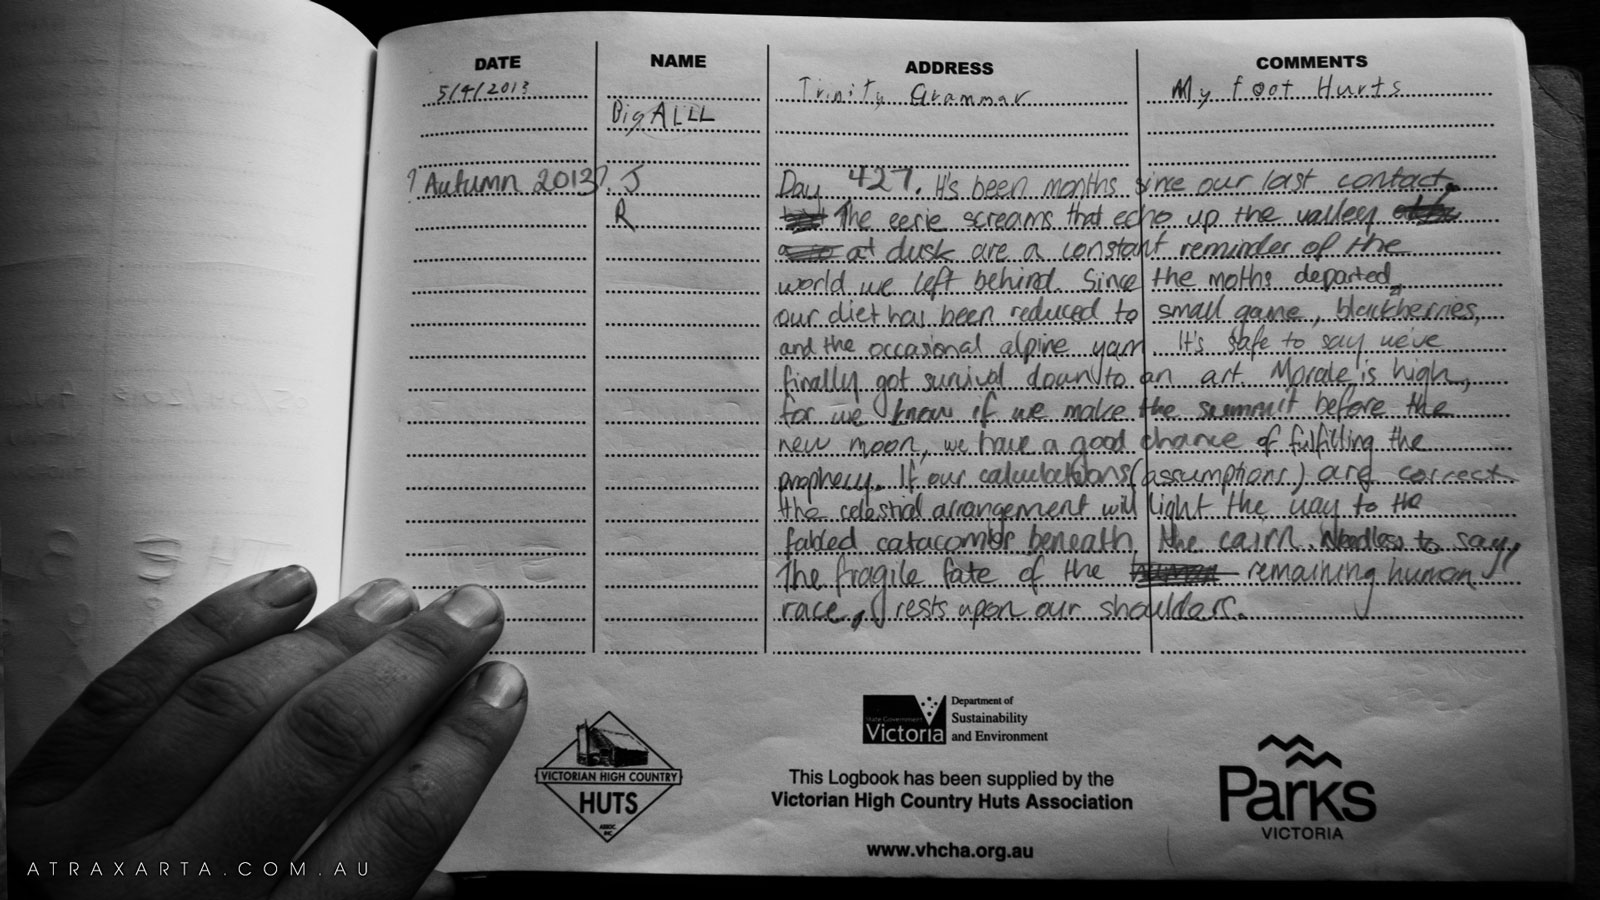 DATE NAME ADDRESS COMMENTS
5/4/2013 Trinity Grammar My foot Hurts
Big ALLL
? Autumn 2013? J Day 427. It's been months since our last contact.
R The eerie screams that echo up the valley
at dusk are a constant reminder of the
world we left behind. Since the moths departed,
our diet has been reduced to small game, blackberries,
and the occasional alpine yam. It's safe to say we've
finally got survival down to an art. Morale is high,
for we know if we make the summit before the
new moon, we have a good chance of fulfilling the
prophecy. If our calculations (assumptions) are correct
the celestial arrangement will light the way to the
fabled catacombs beneath the cairn. Needless to say,
the fragile fate of the remaining human
race, rests upon our shoulders.
VICTORIAN HIGH COUNTRY
HUTS
ASSOC
INC
State Government
Victoria
Department of
Sustainability
and Environment
This Logbook has been supplied by the
Victorian High Country Huts Association
www.vhcha.org.au
Parks
VICTORIA
ATRAXARTA.COM.AU